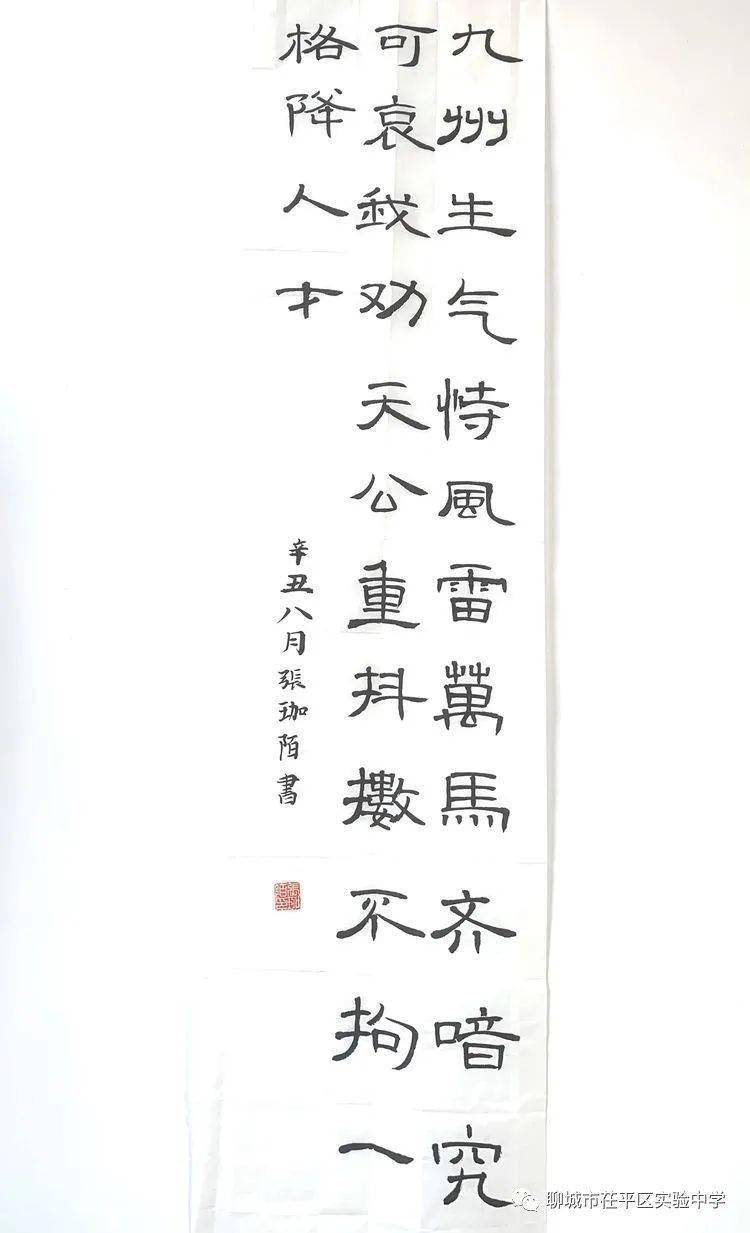 九州生气恃風雷萬馬齐喑究
可哀我劝天公重抖擻不拘一
格降人才
辛丑八月張珈陌書
聊城市茌平区实验中学